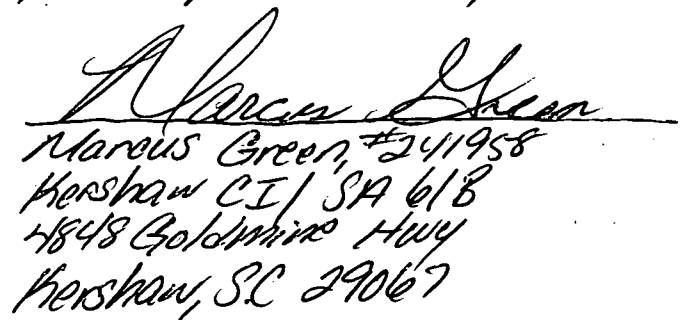 Marcus Green
Marcus Green, #241958
Kershaw CI/ SA 61B
4848 Goldmine Hwy
Kershaw, SC 29067